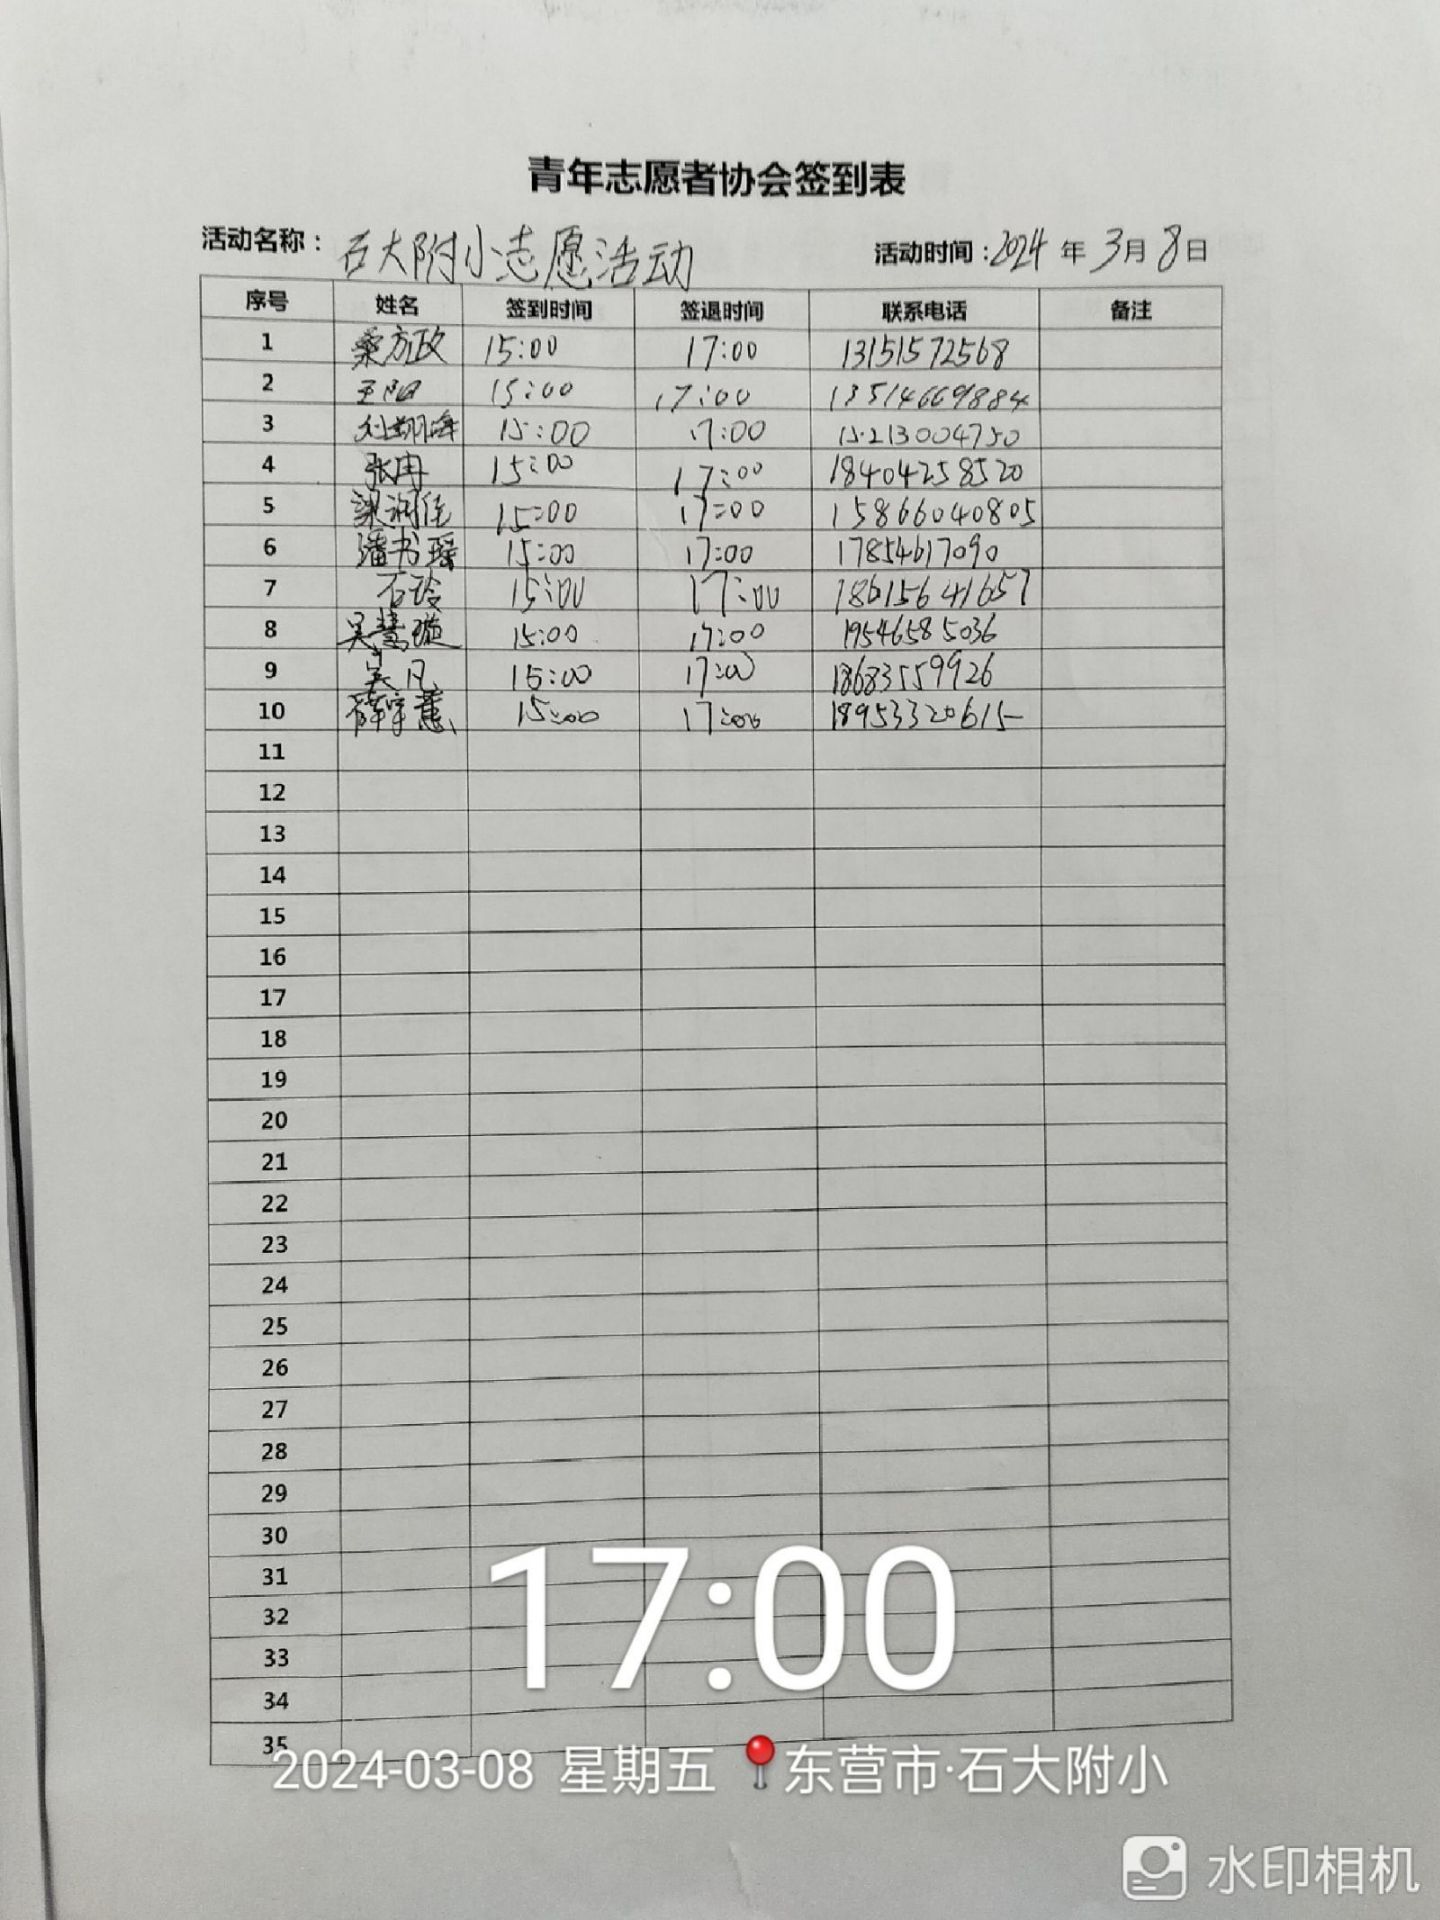 青年志愿者协会签到表
活动名称： 石大附小志愿活动 活动时间：2024 年 3 月 8 日
序号 姓名 签到时间 签退时间 联系电话 备注
1 桑方政 15:00 17:00 13151572568
2 王阳 15:00 17:00 13514669884
3 15:00 17:00 15213004750
4 张冉 15:00 17:00 18404258520
5 梁润佳 15:00 17:00 15866040805
6 潘书瑶 15:00 17:00 17854617090
7 石玲 15:00 17:00 18615641657
8 吴慧璇 15:00 17:00 19546585036
9 吴凡 15:00 17:00 18683559926
10 薛宇蕙 15:00 17:00 18953320615
11
12
13
14
15
16
17
18
19
20
21
22
23
24
25
26
27
28
29
30
31
32
33
34
35
17:00
2024-03-08 星期五 东营市·石大附小
水印相机